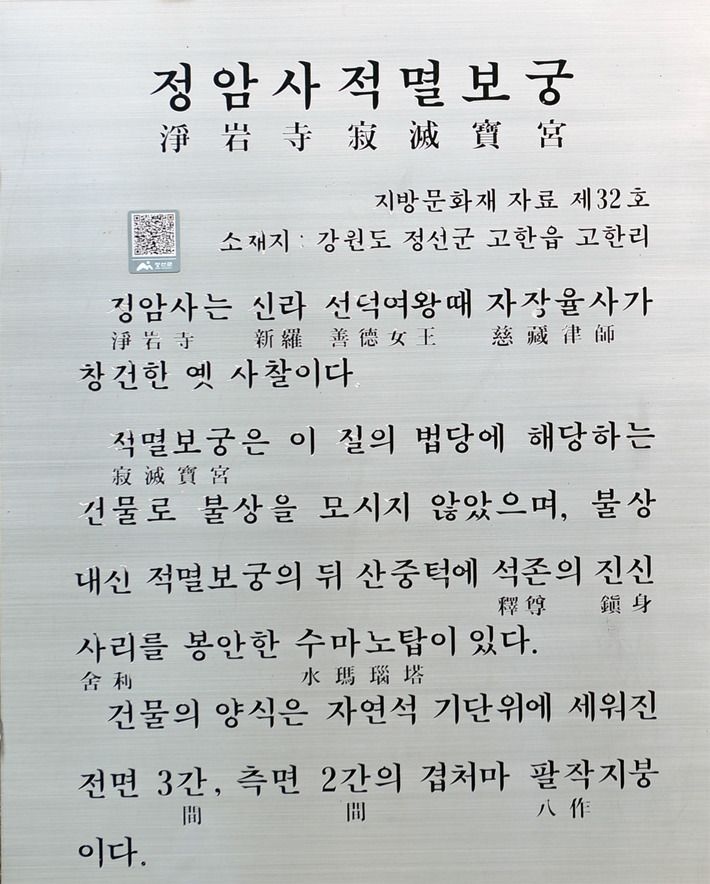 정암사적멸보궁
淨岩寺寂滅寶宮
지방문화재 자료 제32호
소재지 : 강원도 정선군 고한읍 고한리
정암사는 신라 선덕여왕때 자장율사가
淨岩寺 新羅 善德女王 慈藏律師
창건한 옛 사찰이다
적멸보궁은 이 절의 법당에 해당하는
寂滅寶宮
건물로 불상을 모시지 않았으며, 불상
대신 적멸보궁의 뒤 산중턱에 석존의 진신
釋尊 鎭身
사리를 봉안한 수마노탑이 있다.
舍利 水瑪瑙塔
건물의 양식은 자연석 기단위에 세워진
전면 3간, 측면 2간의 겹처마 팔작지붕
間 間 八作
이다.